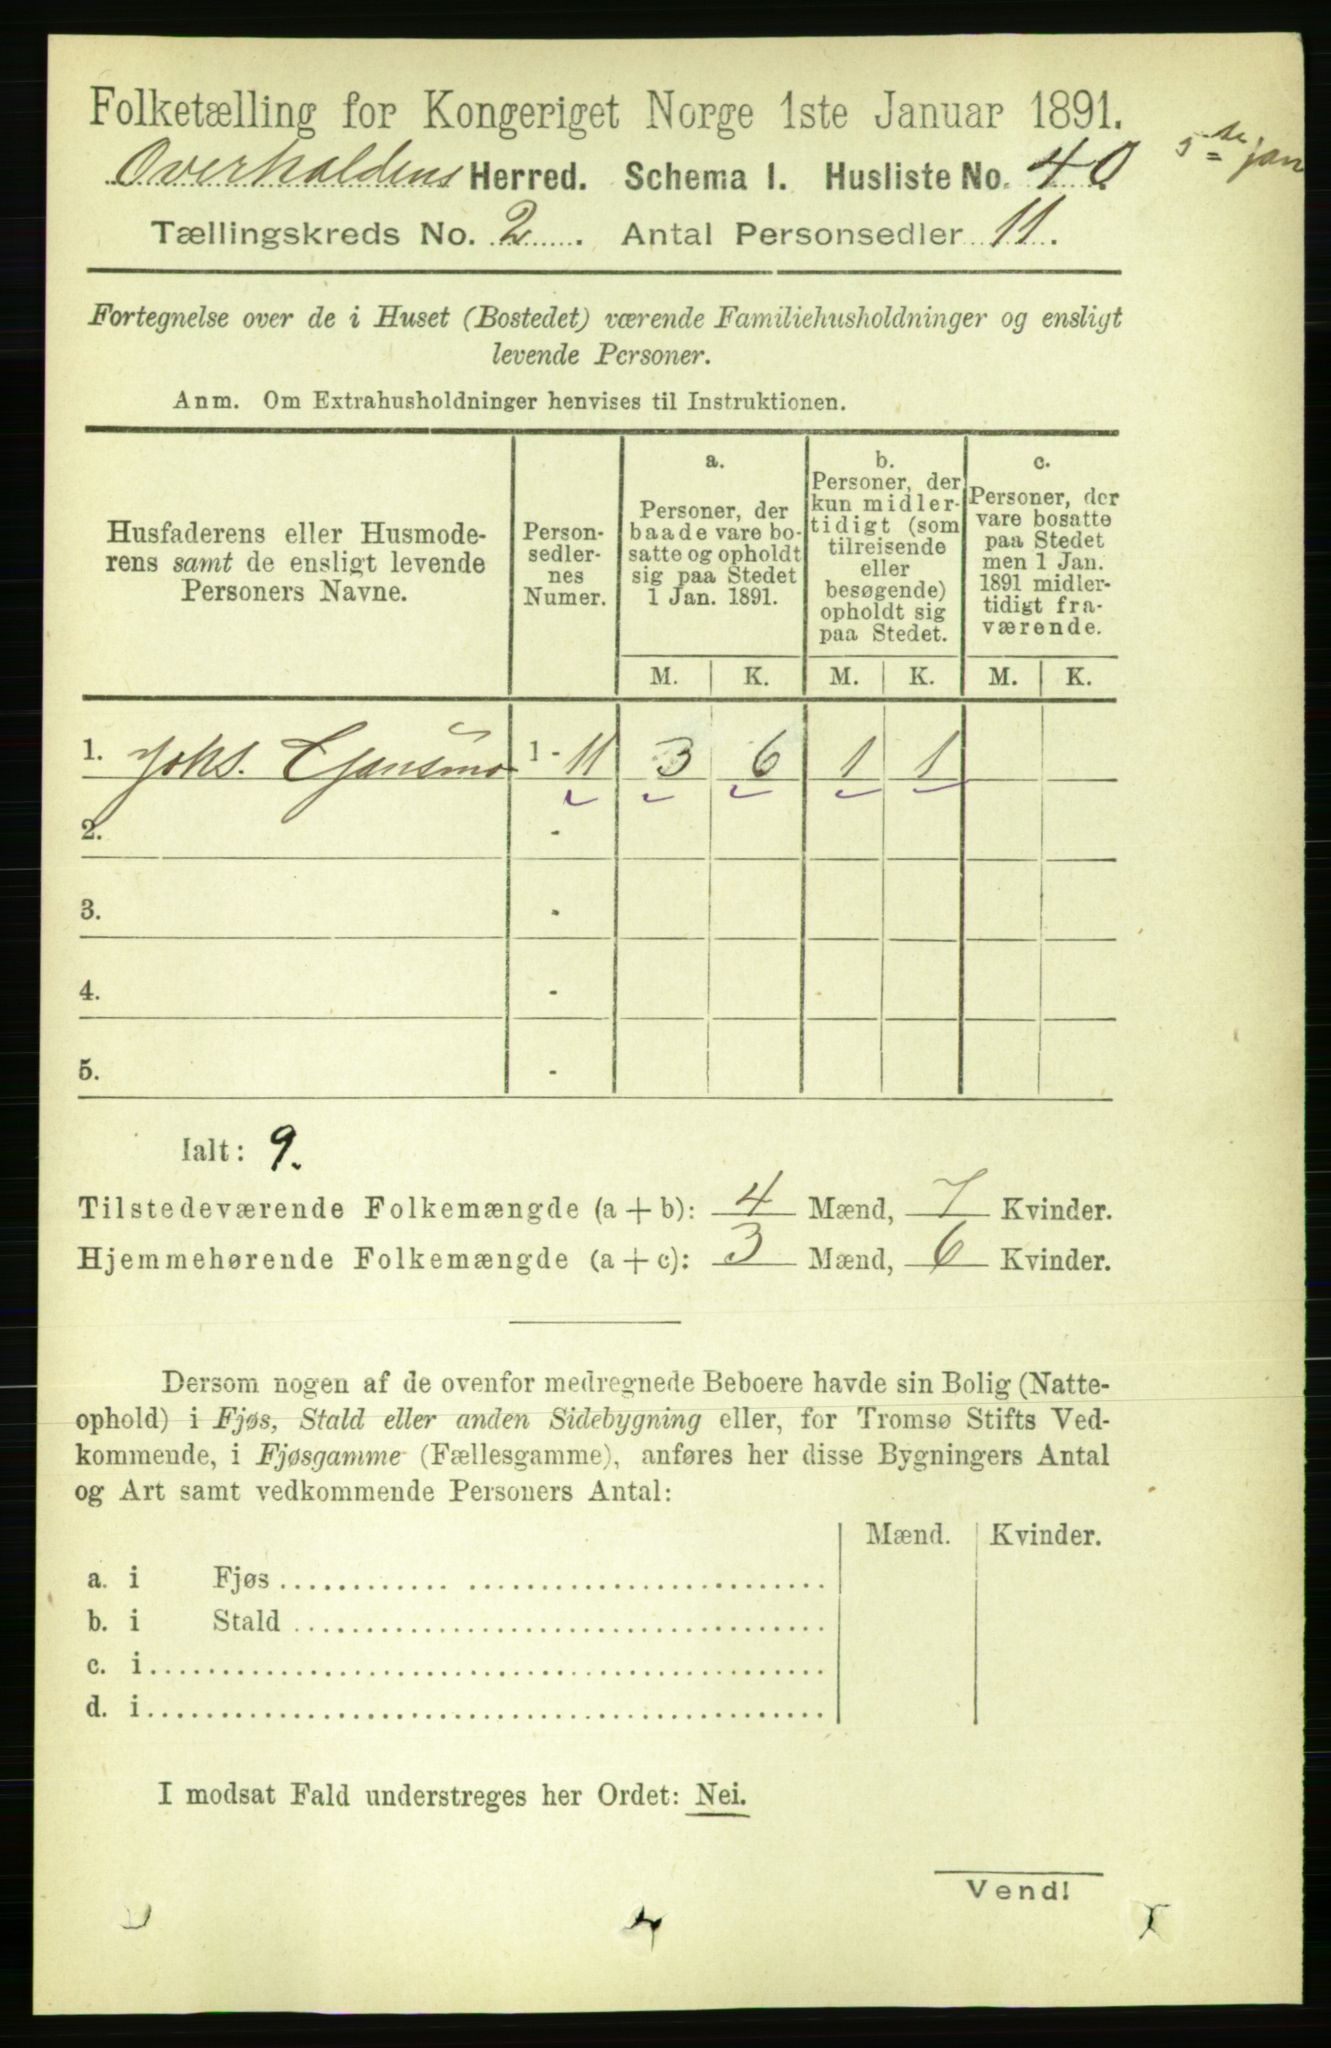 Folketælling for Kongeriget Norge 1ste Januar 1891.
5te jan
Overhaldens Herred. Schema I. Husliste No. 40
Tællingskreds No. 2. Antal Personsedler 11.
Fortegnelse over de i Huset (Bostedet) værende Familiehusholdninger og ensligt
levende Personer.
Anm. Om Extrahusholdninger henvises til Instruktionen.
Husfaderens eller Husmode-
rens samt de ensligt levende
Personers Navne.
Person-
sedler-
nes
Numer.
a.
Personer, der
baade vare bo-
satte og opholdt
sig paa Stedet
1 Jan. 1891.
b.
Personer, der
kun midler-
tidigt (som
tilreisende
eller
besøgende)
opholdt sig
paa Stedet.
c.
Personer, der
vare bosatte
paa Stedet
men 1 Jan.
1891 midler-
tidigt fra-
værende.
M. K. M. K. M. K.
1. Johs. 1 - 11 3 6 1 1
2. -
3. -
4. -
5. -
Ialt: 9.
Tilstedeværende Folkemængde (a + b): 4 Mænd, 7 Kvinder.
Hjemmehørende Folkemængde (a + c): 3 Mænd, 6 Kvinder.
Dersom nogen af de ovenfor medregnede Beboere havde sin Bolig (Natte-
ophold) i Fjøs, Stald eller anden Sidebygning eller, for Tromsø Stifts Ved-
kommende, i Fjøsgamme (Fællesgamme), anføres her disse Bygningers Antal
og Art samt vedkommende Personers Antal:
Mænd. Kvinder.
a. i Fjøs
b. i Stald
c. i
d. i
I modsat Fald understreges her Ordet: Nei.
Vend!